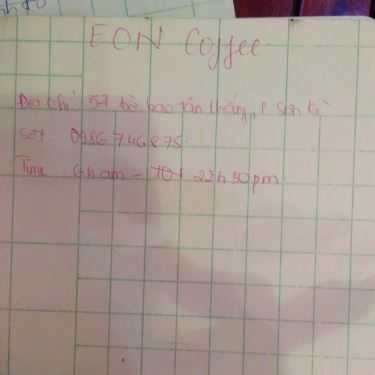 EON Coffee
Địa chỉ 57 bờ bao tân thắng, P sơn kì
SĐT 0986 746 875
Time 6h am - 22h30pm